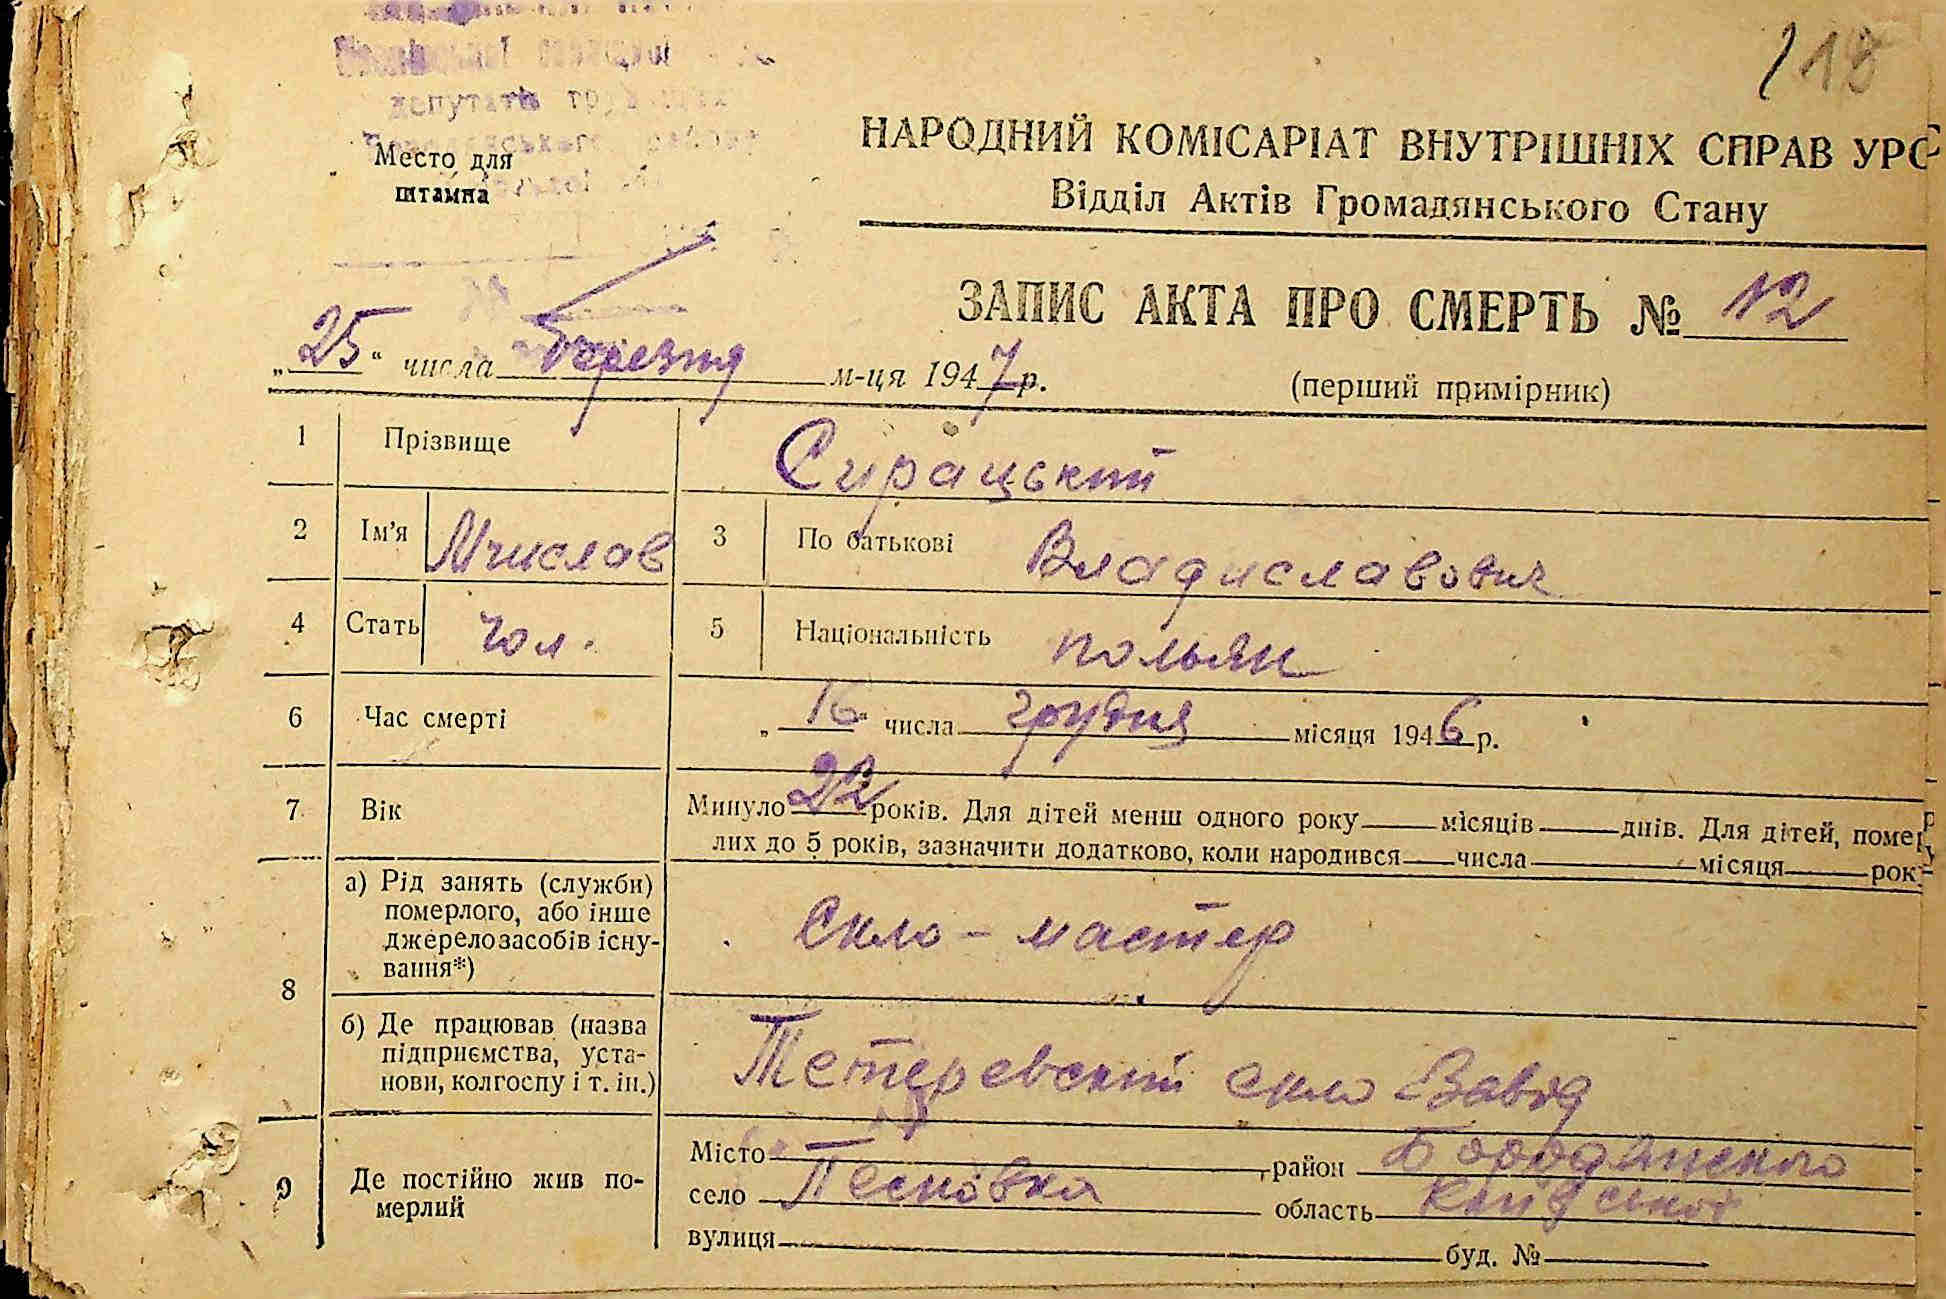 118
депутатів
району
Место для
штампа
НАРОДНИЙ КОМІСАРІАТ ВНУТРІШНІХ СПРАВ УРС
Відділ Актів Громадянського Стану
ЗАПИС АКТА ПРО СМЕРТЬ № 12
„25“ числа березня м-ця 1947 р.
(перший примірник)
1 Прізвище Сирацький
2 Ім'я Мчислав 3 По батькові Владиславович
4 Стать чол. 5 Національність польян
6 Час смерті „16“ числа грудня місяця 1946 р.
7 Вік Минуло 22 років. Для дітей менш одного року місяців днів. Для дітей, помер
лих до 5 років, зазначити додатково, коли народився числа місяця рок
8 а) Рід занять (служби)
померлого, або інше
джерело засобів існу-
вання*)
Скло-мастер
б) Де працював (назва
підприємства, уста-
нови, колгоспу і т. ін.)
Тетеревский скло Завод
9 Де постійно жив по-
мерлий
Місто , район Бородянского
село Песковка область Київської
вулиця буд. №